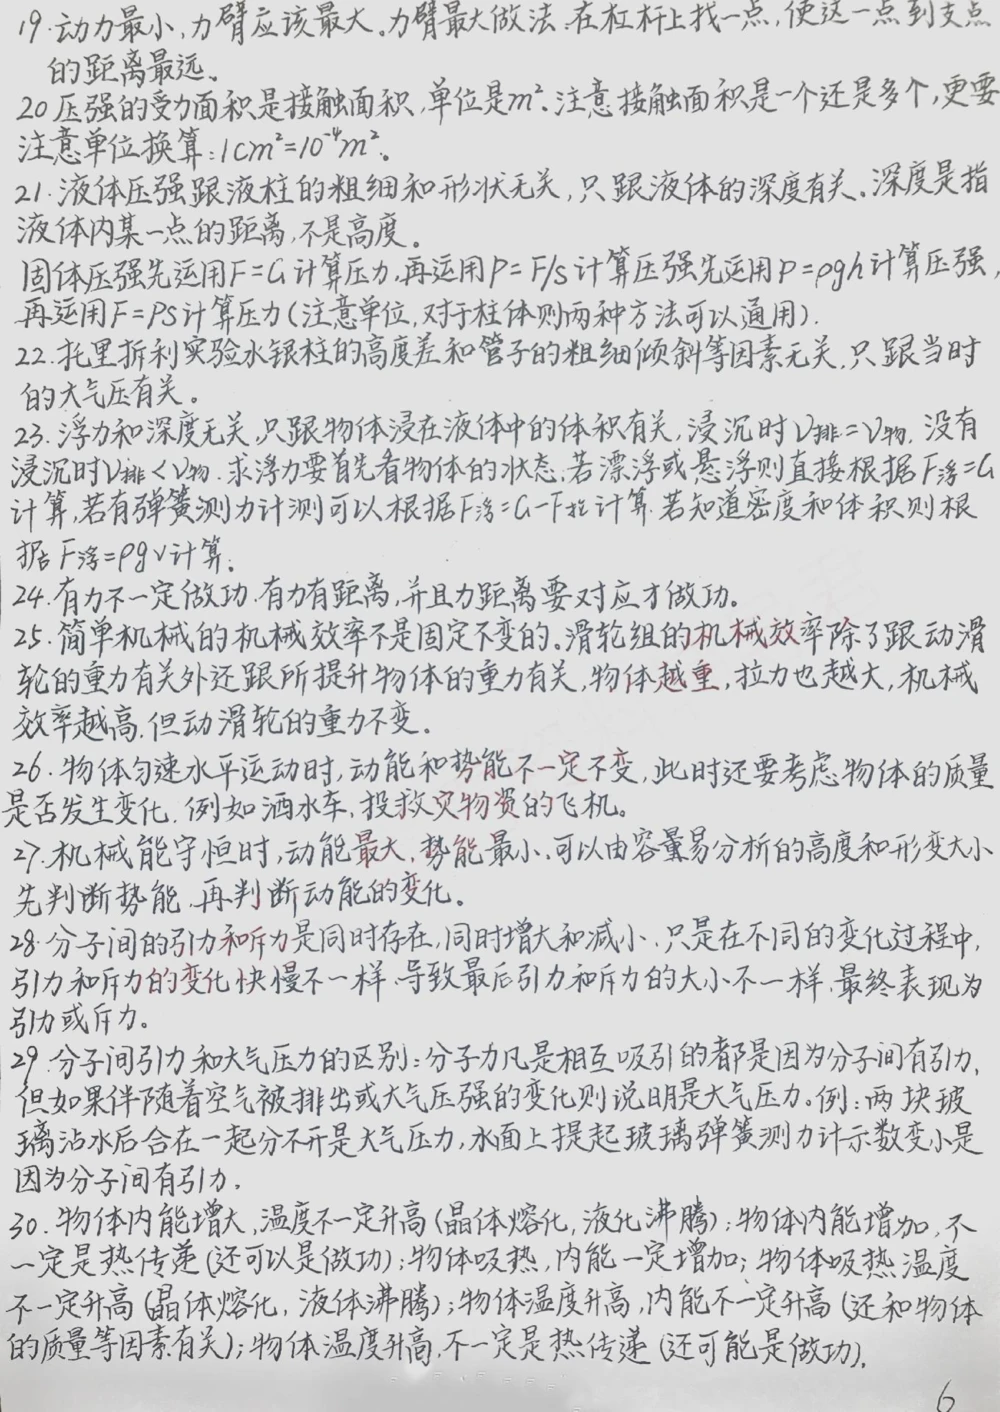 19.动力最小,力臂应该最大。力臂最大做法.在杠杆上找一点,使这一点到支点
的距离最远。
20 压强的受力面积是接触面积,单位是m².注意接触面积是一个还是多个,更要
注意单位换算:1cm²=10⁻⁴m²。
21.液体压强跟液柱的粗细和形状无关,只跟液体的深度有关.深度是指
液体内某一点的距离,不是高度。
固体压强先运用F=G计算压力,再运用P=F/S计算压强先运用P=ρgh计算压强,
再运用F=PS计算压力(注意单位,对于柱体则两种方法可以通用).
22.托里拆利实验水银柱的高度差和管子的粗细倾斜等因素无关,只跟当时
的大气压有关。
23.浮力和深度无关,只跟物体浸在液体中的体积有关,浸沉时V排=V物,没有
浸沉时V排<V物.求浮力要首先看物体的状态,若漂浮或悬浮则直接根据F浮=G
计算,若有弹簧测力计测可以根据F浮=G-F拉计算.若知道密度和体积则根
据F浮=ρgv计算.
24.有力不一定做功.有力有距离,并且力距离要对应才做功。
25.简单机械的机械效率不是固定不变的。滑轮组的机械效率除了跟动滑
轮的重力有关外还跟所提升物体的重力有关,物体越重,拉力也越大,机械
效率越高,但动滑轮的重力不变.
26.物体匀速水平运动时,动能和势能不一定不变,此时还要考虑物体的质量
是否发生变化.例如洒水车,投救灾物资的飞机。
27.机械能守恒时,动能最大,势能最小.可以由容量易分析的高度和形变大小
先判断势能,再判断动能的变化。
28.分子间的引力和斥力是同时存在,同时增大和减小.只是在不同的变化过程中,
引力和斥力的变化快慢不一样.导致最后引力和斥力的大小不一样,最终表现为
引力或斥力。
29.分子间引力和大气压力的区别:分子力凡是相互吸引的都是因为分子间有引力,
但如果伴随着空气被排出或大气压强的变化则说明是大气压力。例:两块玻
璃沾水后合在一起分不开是大气压力,水面上提起玻璃弹簧测力计示数变小是
因为分子间有引力.
30.物体内能增大,温度不一定升高(晶体熔化,液化沸腾);物体内能增加,不
一定是热传递(还可以是做功);物体吸热,内能一定增加;物体吸热温度
不一定升高(晶体熔化,液体沸腾);物体温度升高,内能不一定升高(还和物体
的质量等因素有关);物体温度升高,不一定是热传递(还可能是做功),
6